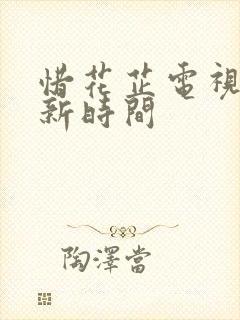 惜花芷電視
新時間
陶澤當